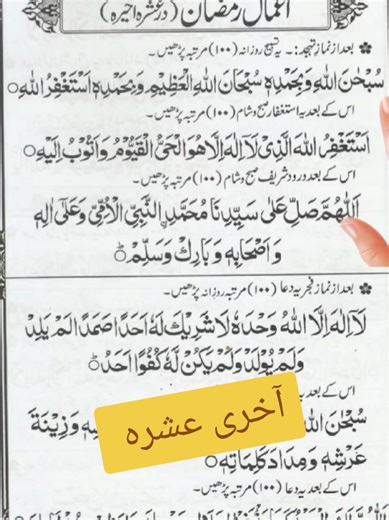 اعمال رمضان (در عشرہ اخیرہ)
بعد از نماز تہجد :۔ یہ تسبیح روزانہ (۱۰۰) مرتبہ پڑھیں۔
سُبْحٰنَ اللهِ وَبِحَمْدِهٖ سُبْحَانَ اللهِ الْعَظِيْمِ وَبِحَمْدِهٖ اَسْتَغْفِرُ اللهَ
اس کے بعد یہ استغفار صبح و شام (۱۰۰) مرتبہ پڑھیں۔
اَسْتَغْفِرُ اللهَ الَّذِىْ لَآ اِلٰهَ اِلَّا هُوَ الْحَىُّ الْقَيُّوْمُ وَاَتُوْبُ اِلَيْهِ
اس کے بعد درود شریف صبح و شام (۱۰۰) مرتبہ پڑھیں۔
اَللّٰهُمَّ صَلِّ عَلٰى سَيِّدِنَا مُحَمَّدِ ۨالنَّبِيِّ الْاُمِّيِّ وَعَلٰٓى اٰلِهٖ
وَ اَصْحَابِهٖ وَ بَارِكْ وَسَلِّمْ
بعد از نماز فجر یہ دعا (۱۰۰) مرتبہ روزانہ پڑھیں۔
لَآ اِلٰهَ اِلَّا اللهُ وَحْدَهٗ لَا شَرِيْكَ لَهٗ اَحَدًا صَمَدًا لَمْ يَلِدْ
وَلَمْ يُوْلَدْ وَلَمْ يَكُنْ لَّهٗ كُفُوًا اَحَدٌ
اس کے بعد یہ
سُبْحٰنَ اللهِ
وَزِيْنَةَ
آخری عشرہ
عَرْشِهٖ وَمِدَادَ كَلِمَاتِهٖ
اس کے بعد یہ دعا (۱۰۰) مرتبہ پڑھیں۔